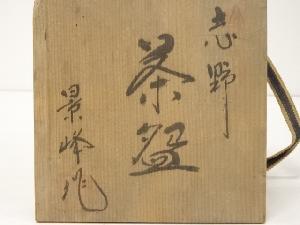 志野
茶盌
景峰作